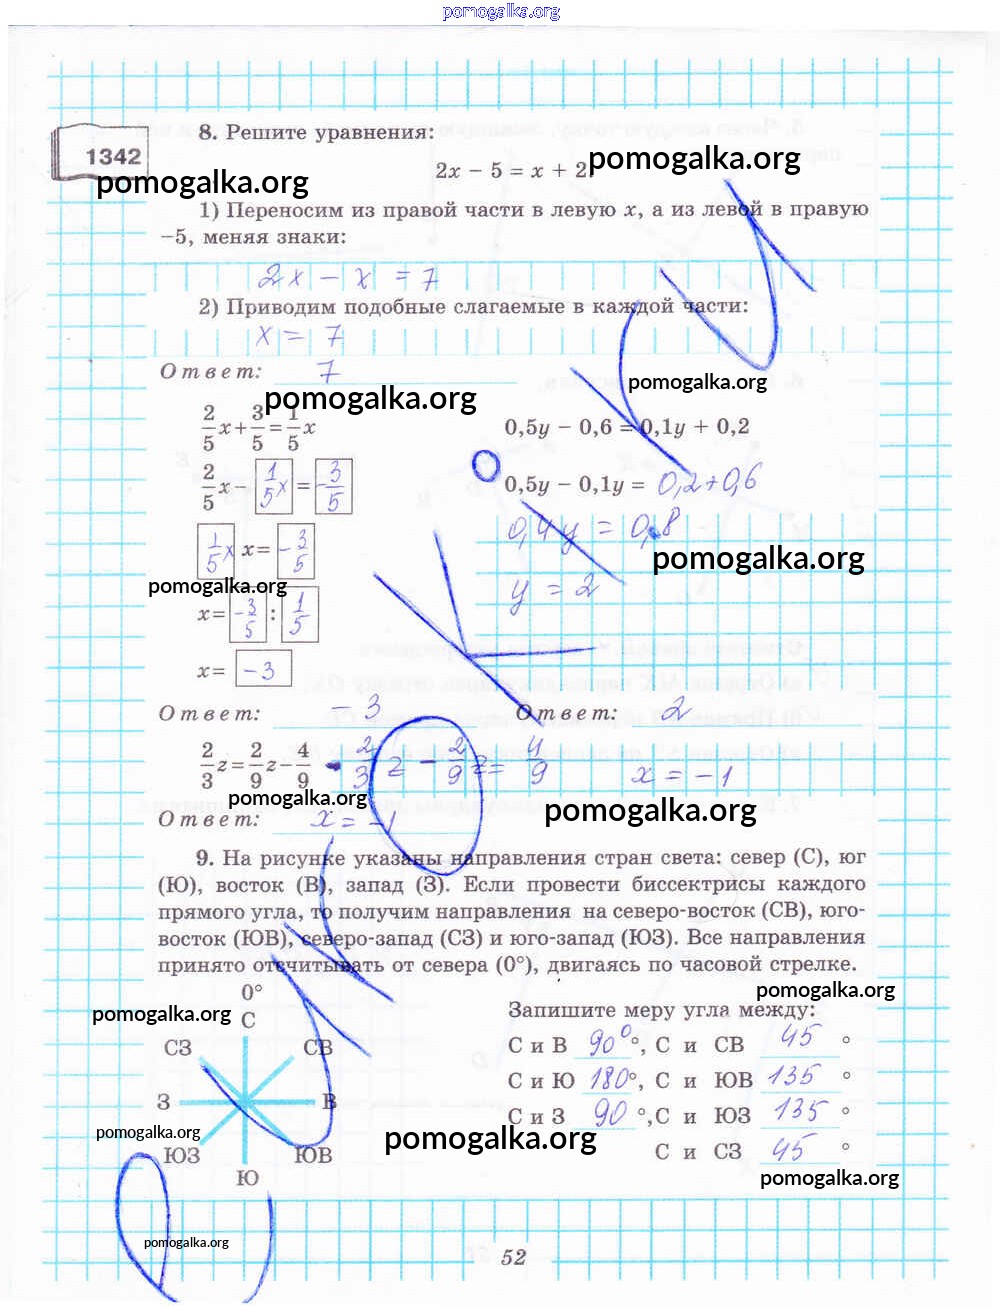 pomogalka.org
8. Решите уравнения:
1342
2x − 5 = x + 2.
pomogalka.org
pomogalka.org
1) Переносим из правой части в левую x, а из левой в правую
−5, меняя знаки:
2x − x = 7
2) Приводим подобные слагаемые в каждой части:
x = 7
Ответ: 7
pomogalka.org
pomogalka.org
2/5 x + 3/5 = 1/5 x
0,5y − 0,6 = 0,1y + 0,2
2/5 x − 1/5 x = −3/5
0,5y − 0,1y = 0,2+0,6
1/5 x x = −3/5
0,4y = 0,8
pomogalka.org
pomogalka.org
x = −3/5 : 1/5
y = 2
x = −3
Ответ: −3
Ответ: 2
2/3 z = 2/9 z − 4/9
2/3 z − 2/9 z = 4/9
x = −1
pomogalka.org
pomogalka.org
Ответ: x = −1
9. На рисунке указаны направления стран света: север (С), юг
(Ю), восток (В), запад (З). Если провести биссектрисы каждого
прямого угла, то получим направления на северо-восток (СВ), юго-
восток (ЮВ), северо-запад (СЗ) и юго-запад (ЮЗ). Все направления
принято отсчитывать от севера (0°), двигаясь по часовой стрелке.
pomogalka.org
pomogalka.org
0°
С
СЗ
СВ
З
В
ЮЗ
ЮВ
Ю
Запишите меру угла между:
С и В 90° °, С и СВ 45 °
С и Ю 180 °, С и ЮВ 135 °
С и З 90 °, С и ЮЗ 135 °
С и СЗ 45 °
pomogalka.org
pomogalka.org
pomogalka.org
pomogalka.org
52